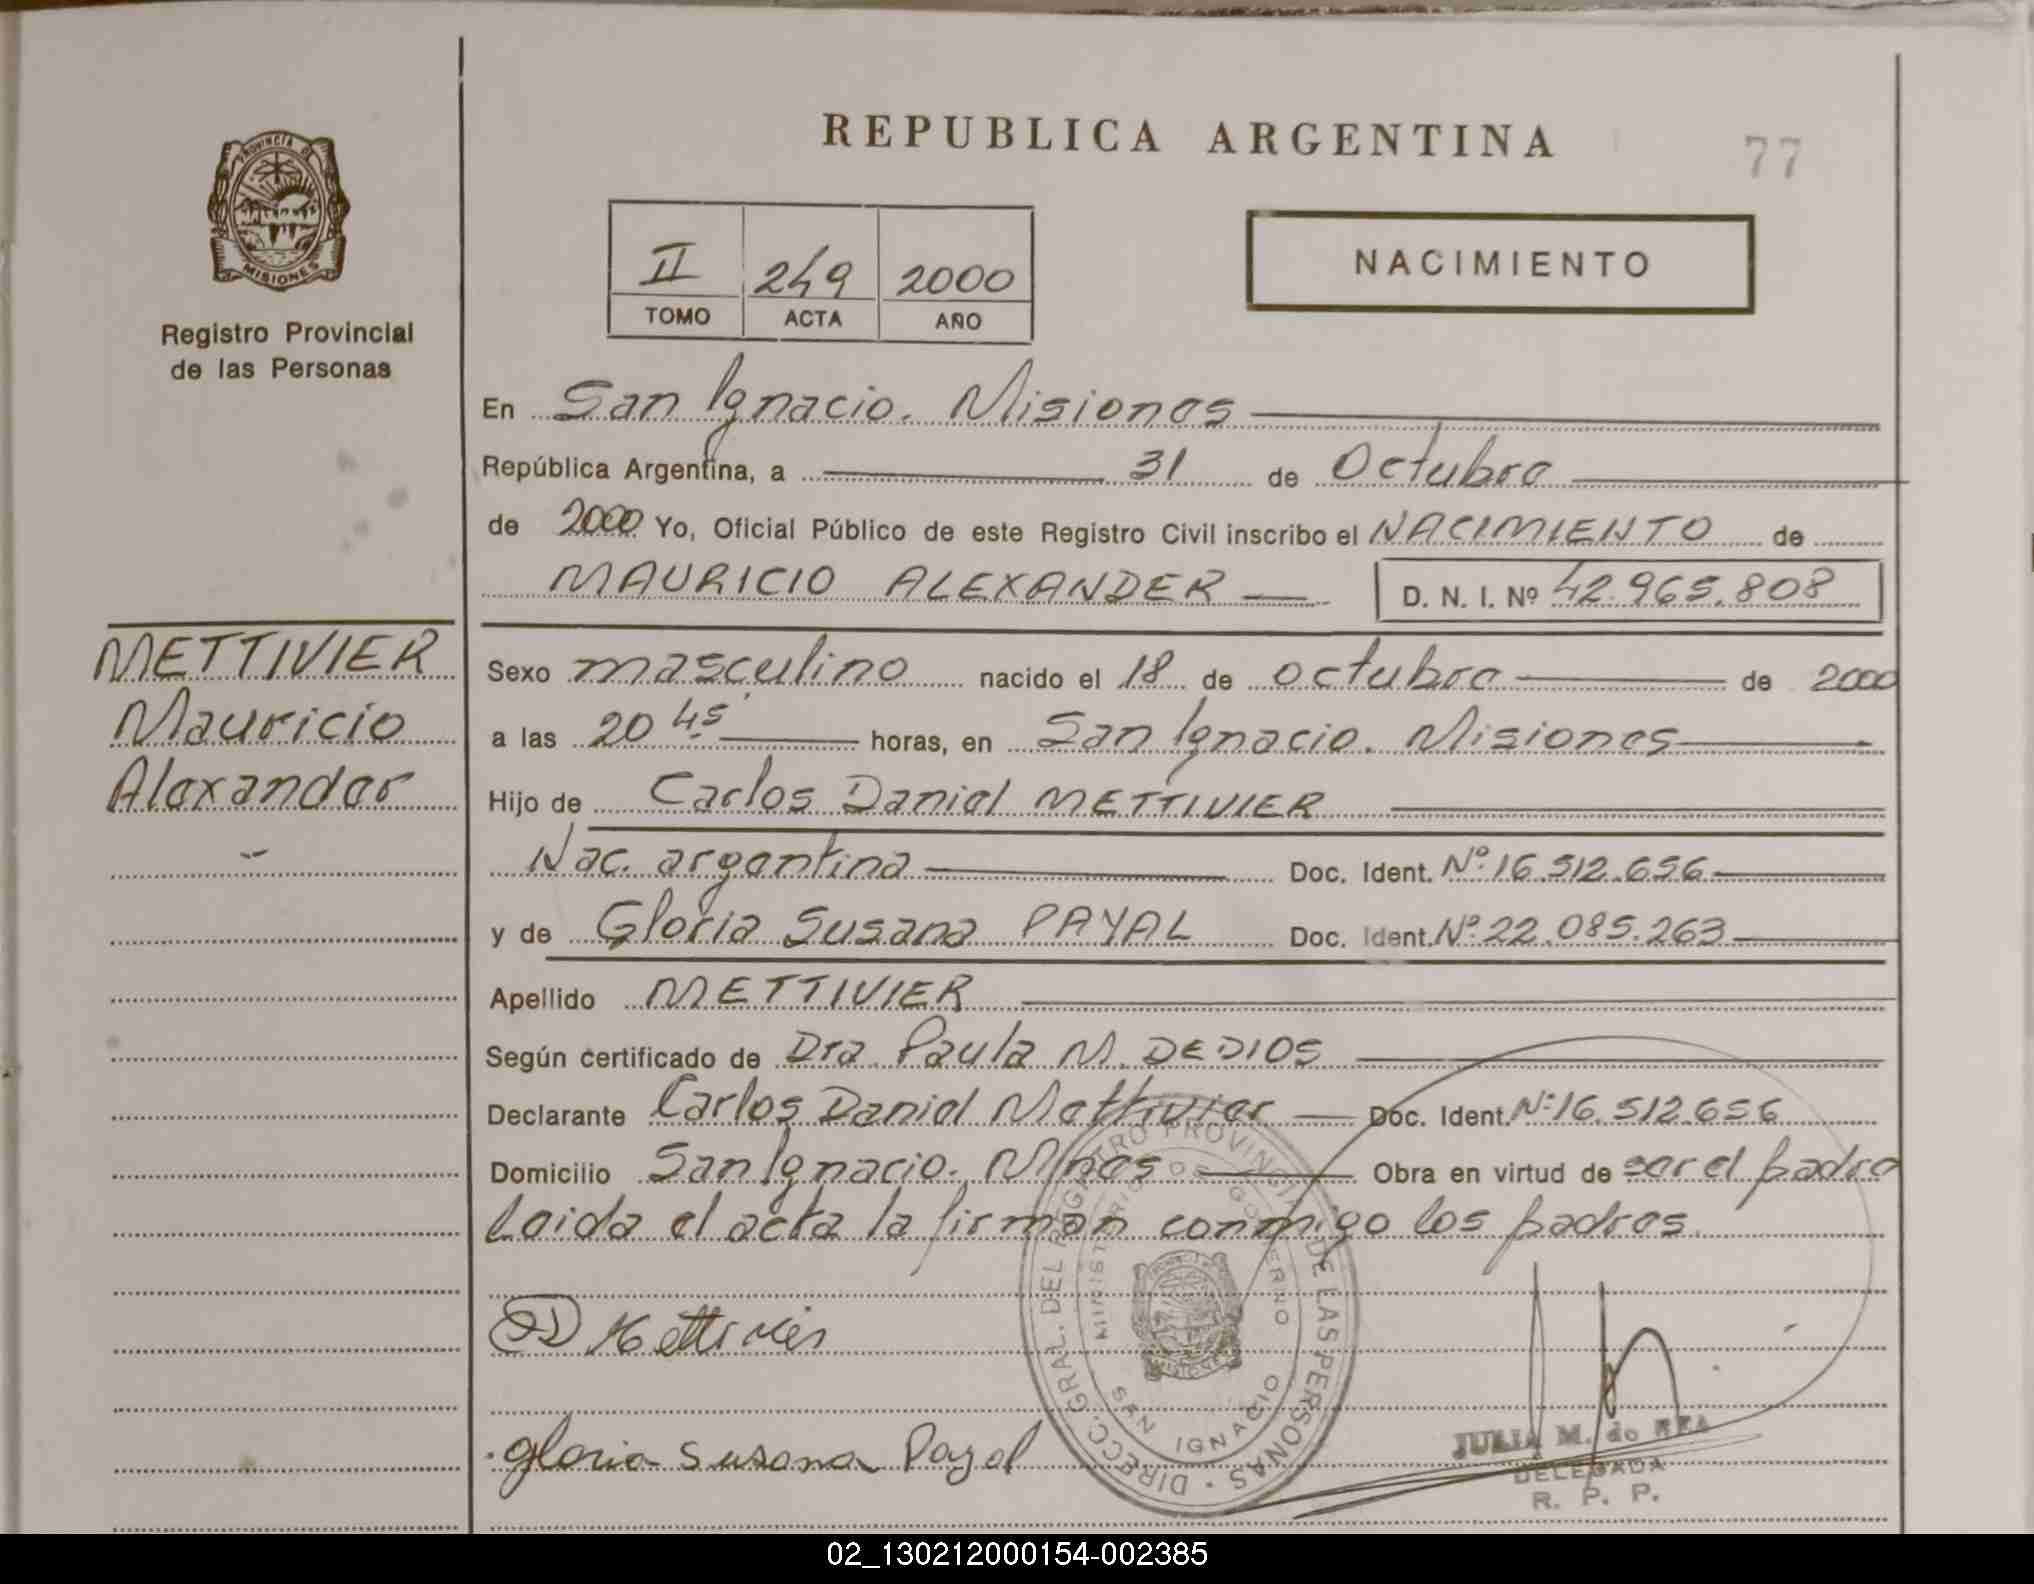 REPUBLICA ARGENTINA
77
PROVINCIA DE
MISIONES
Registro Provincial
de las Personas
II 249 2000
TOMO ACTA AÑO
NACIMIENTO
En San Ignacio. Misiones
República Argentina, a 31 de Octubre
de 2000 Yo, Oficial Público de este Registro Civil inscribo el NACIMIENTO de
MAURICIO ALEXANDER D. N. I. Nº 42.965.808
METTIVIER
Mauricio
Alexander
Sexo masculino nacido el 18 de octubre de 2000
a las 20 45 horas, en San Ignacio. Misiones
Hijo de Carlos Daniel METTIVIER
Nac. argentina Doc. Ident. Nº 16.512.656
y de Gloria Susana PAYAL Doc. Ident. Nº 22.085.263
Apellido METTIVIER
Según certificado de Dra. Paula M. DEDIOS
Declarante Carlos Daniel Mettivier Doc. Ident. Nº 16.512.656
Domicilio San Ignacio. Mnes Obra en virtud de ser el padre
Leida el acta la firman conmigo los padres.
DIRECC. GRAL. DEL REGISTRO PROVINCIAL DE LAS PERSONAS
MINISTERIO DE GOBIERNO
SAN IGNACIO
Mettivier
Gloria Susana Payal
JULIA M. do REA
DELEGADA
R. P. P.
02_130212000154-002385